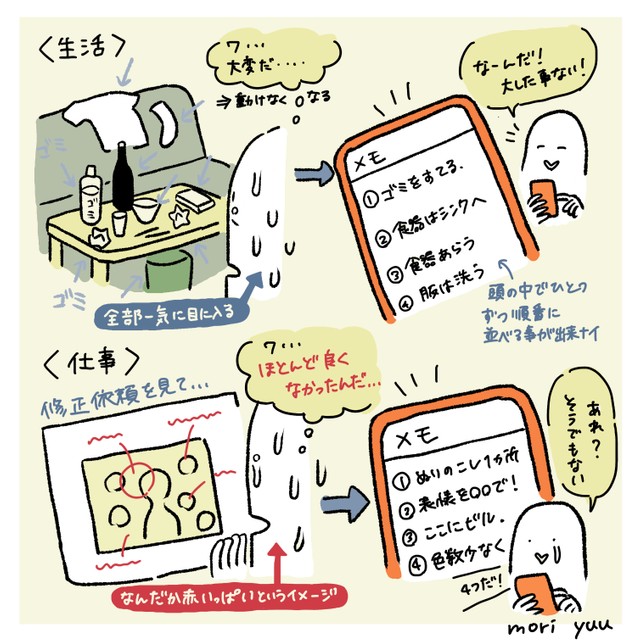 〈生活〉
ワ...
大変だ....
⇒動けなくなる
ゴミ
ゴミ
ゴミ
全部一気に目に入る
メモ
①ゴミをすてる.
②食器はシンクへ
③食器あらう
④服は洗う
なーんだ!
大した事ない!
頭の中でひとつ
ずつ順番に
並べる事が出来ナイ
〈仕事〉
修正依頼を見て...
ワ...
ほとんど良く
なかったんだ...
なんだか赤いっぱいというイメージ
メモ
①ぬりのこし1ヵ所
②表情を〇〇で!
③ここにビル.
④色数少なく
あれ?
そうでもない
4つだ!
mori yuu